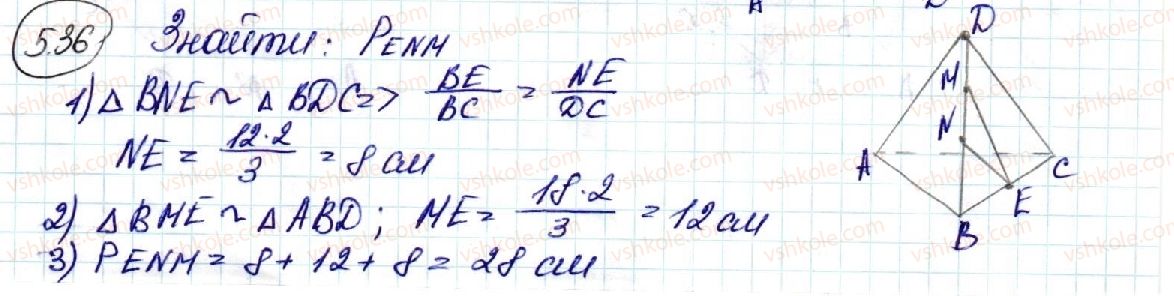 536 Знайти: P_ENM
1) △ BNE ~ △ BDC => BE/BC = NE/DC
NE = 12·2/3 = 8 см
2) △ BME ~ △ ABD; ME = 18·2/3 = 12 см
3) P_ENM = 8 + 12 + 8 = 28 см
D
M
N
A
C
E
B
vshkole.com